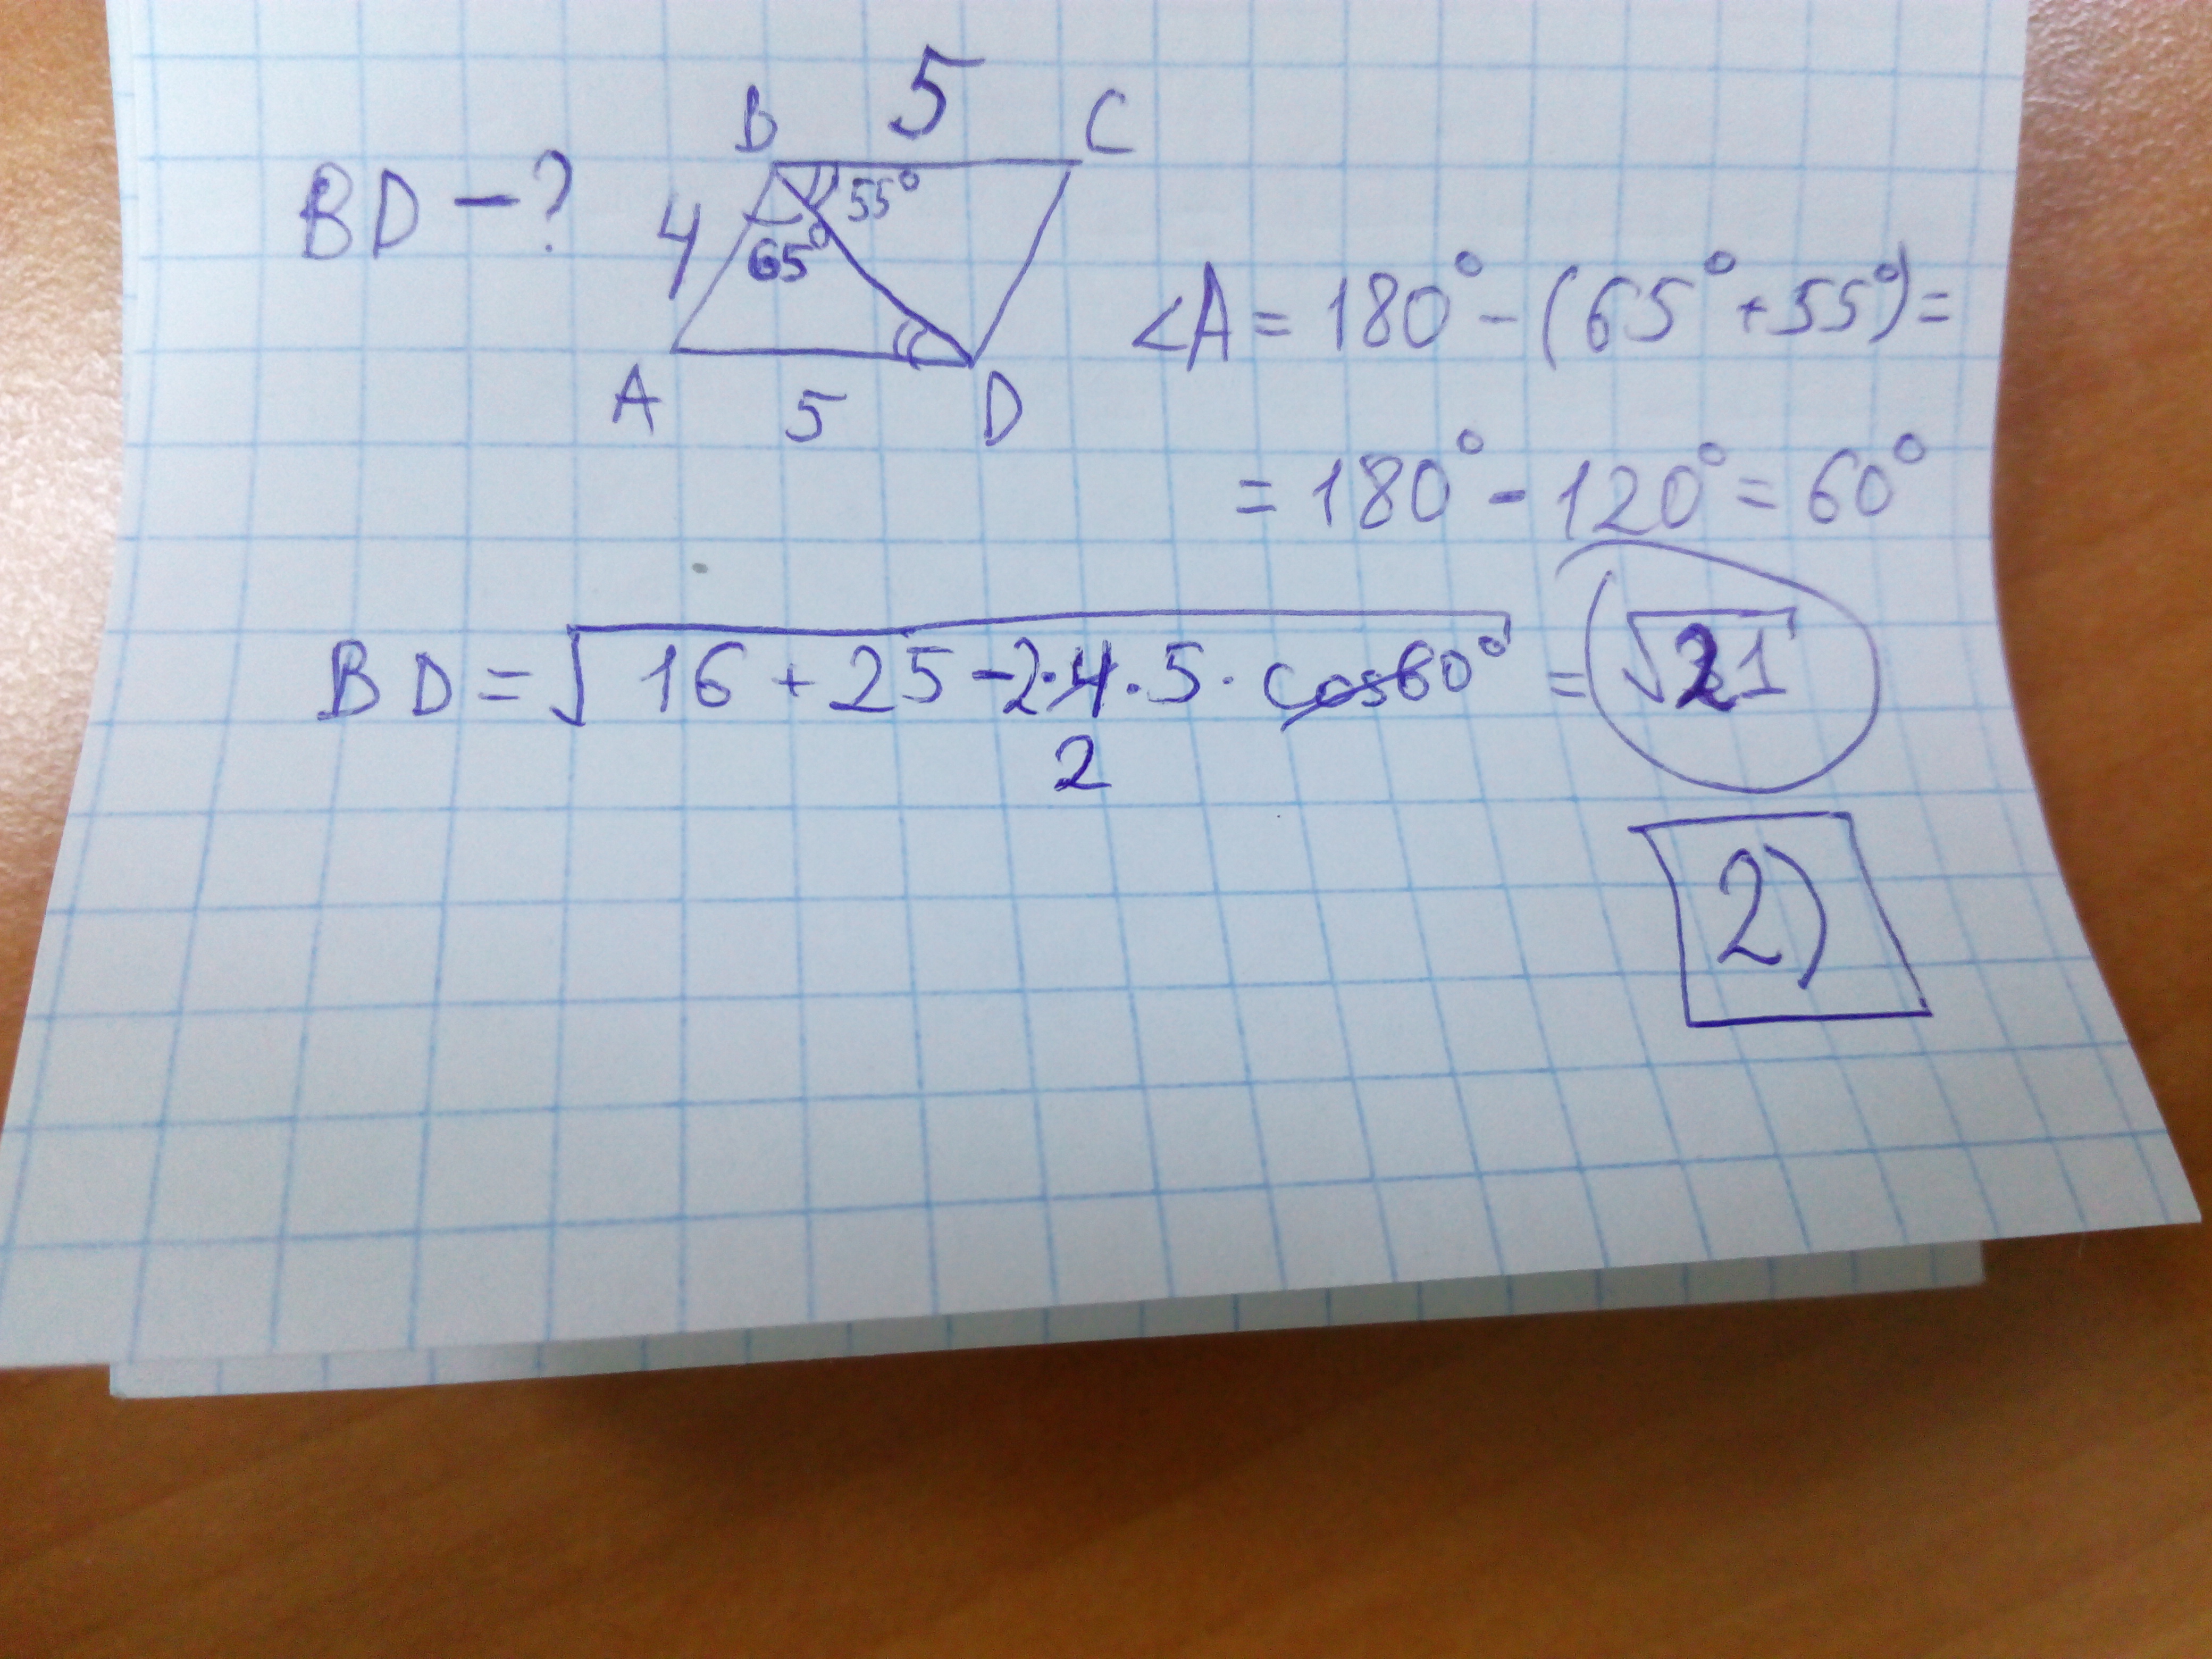 5
B C
BD - ? 4 65° 55°
A 5 D
<A = 180° - (65° + 55°) =
= 180° - 120° = 60°
BD = √16 + 25 - 2·4·5·cos60° = √21
2
2)